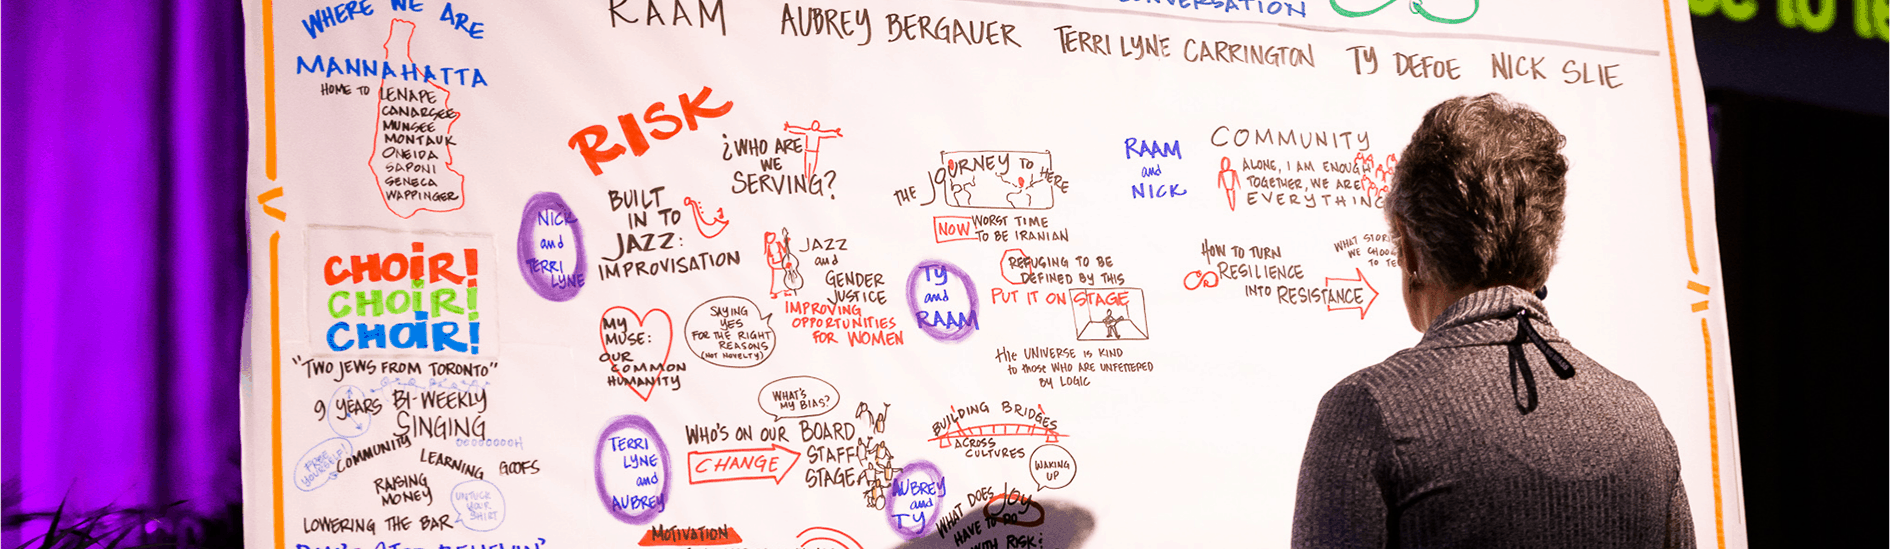 WHERE WE ARE
MANNAHATTA
HOME TO
LENAPE
CANARSEE
MUNSEE
MONTAUK
ONEIDA
SAPONI
SENECA
WAPPINGER
CHOIR!
CHOIR!
CHOIR!
"TWO JEWS FROM TORONTO"
9 YEARS BI-WEEKLY
SINGING
FREE
YOURSELF!
COMMUNITY
LEARNING
GOOFS
RAISING
MONEY
UNTUCK
YOUR
SHIRT
LOWERING THE BAR
CONVERSATION
RAAM
AUBREY BERGAUER
TERRI LYNE CARRINGTON
TY DEFOE
NICK SLIE
RISK
¿WHO ARE
WE
SERVING?
NICK
and
TERRI
LYNE
BUILT
IN TO
JAZZ:
IMPROVISATION
JAZZ
and
GENDER
JUSTICE
IMPROVING
OPPORTUNITIES
FOR WOMEN
MY
MUSE:
OUR
COMMON
HUMANITY
SAYING
YES
FOR THE RIGHT
REASONS
(NOT NOVELTY)
THE JOURNEY TO
HERE
NOW WORST TIME
TO BE IRANIAN
TY
and
RAAM
REFUSING TO BE
DEFINED BY THIS
PUT IT ON STAGE
THE UNIVERSE IS KIND
to those WHO ARE UNFETTERED
BY LOGIC
RAAM
and
NICK
COMMUNITY
ALONE, I AM ENOUGH
TOGETHER, WE ARE
EVERYTHING
HOW TO TURN
RESILIENCE
INTO RESISTANCE
WHAT
WE
TO
TERRI
LYNE
and
AUBREY
WHAT'S
MY BIAS?
WHO'S ON OUR BOARD
STAFF
STAGE
CHANGE
MOTIVATION
BUILDING BRIDGES
ACROSS
CULTURES
WAKING
UP
AUBREY
and
TY
WHAT DOES JOY
HAVE TO DO
WITH RISK?
to